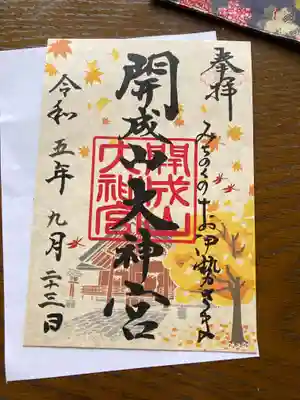 奉拝
みちのくのお伊勢さま
開成山大神宮
開成山
大神宮
令和五年九月二十三日